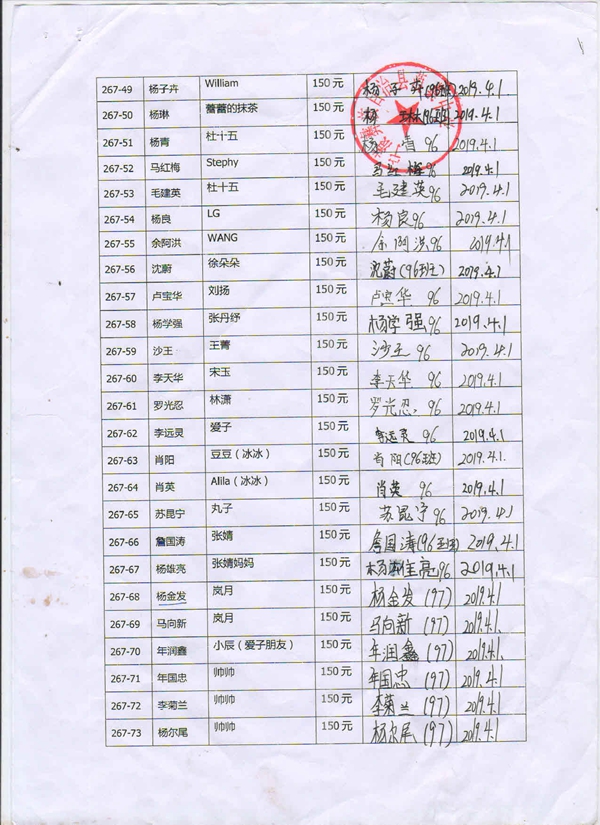 267-49 杨子卉 William 150元 杨子卉(96班) 2019.4.1
267-50 杨琳 蔷蔷的抹茶 150元 杨琳(96班) 2019.4.1
267-51 杨青 杜十五 150元 杨青 96 2019.4.1
267-52 马红梅 Stephy 150元 马红梅96 2019.4.1
267-53 毛建英 杜十五 150元 毛建英96 2019.4.1
267-54 杨良 LG 150元 杨良96 2019.4.1
267-55 余阿洪 WANG 150元 余阿洪96 2019.4.1
267-56 沈蔚 徐朵朵 150元 沈蔚(96班) 2019.4.1
267-57 卢宝华 刘扬 150元 卢宝华 96 2019.4.1
267-58 杨学强 张丹纾 150元 杨学强96 2019.4.1
267-59 沙王 王菁 150元 沙王 96 2019.4.1
267-60 李天华 宋玉 150元 李天华 96 2019.4.1
267-61 罗光忍 林潇 150元 罗光忍 96 2019.4.1
267-62 李远灵 爱子 150元 李远灵 96 2019.4.1
267-63 肖阳 豆豆（冰冰） 150元 肖阳(96班) 2019.4.1
267-64 肖英 Alila（冰冰） 150元 肖英 96 2019.4.1
267-65 苏昆宁 丸子 150元 苏昆宁96 2019.4.1
267-66 詹国涛 张婧 150元 詹国涛(96班) 2019.4.1
267-67 杨雄亮 张婧妈妈 150元 杨雄亮96 2019.4.1
267-68 杨金发 岚月 150元 杨金发(97) 2019.4.1
267-69 马向新 岚月 150元 马向新(97) 2019.4.1
267-70 年润鑫 小辰（爱子朋友） 150元 年润鑫(97) 2019.4.1
267-71 年国忠 帅帅 150元 年国忠(97) 2019.4.1
267-72 李菊兰 帅帅 150元 李菊兰(97) 2019.4.1
267-73 杨尔尾 帅帅 150元 杨尔尾(97) 2019.4.1